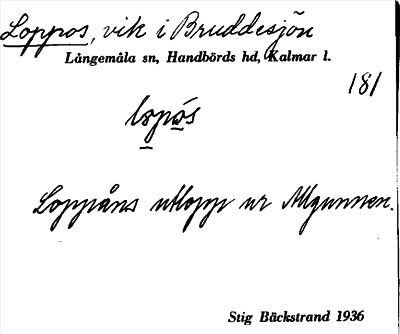 Loppos, vik i Bruddesjön
Långemåla sn, Handbörds hd, Kalmar l.
181
lɔpɷ̀s
Loppåns utlopp ur Allgunnen.
Stig Bäckstrand 1936